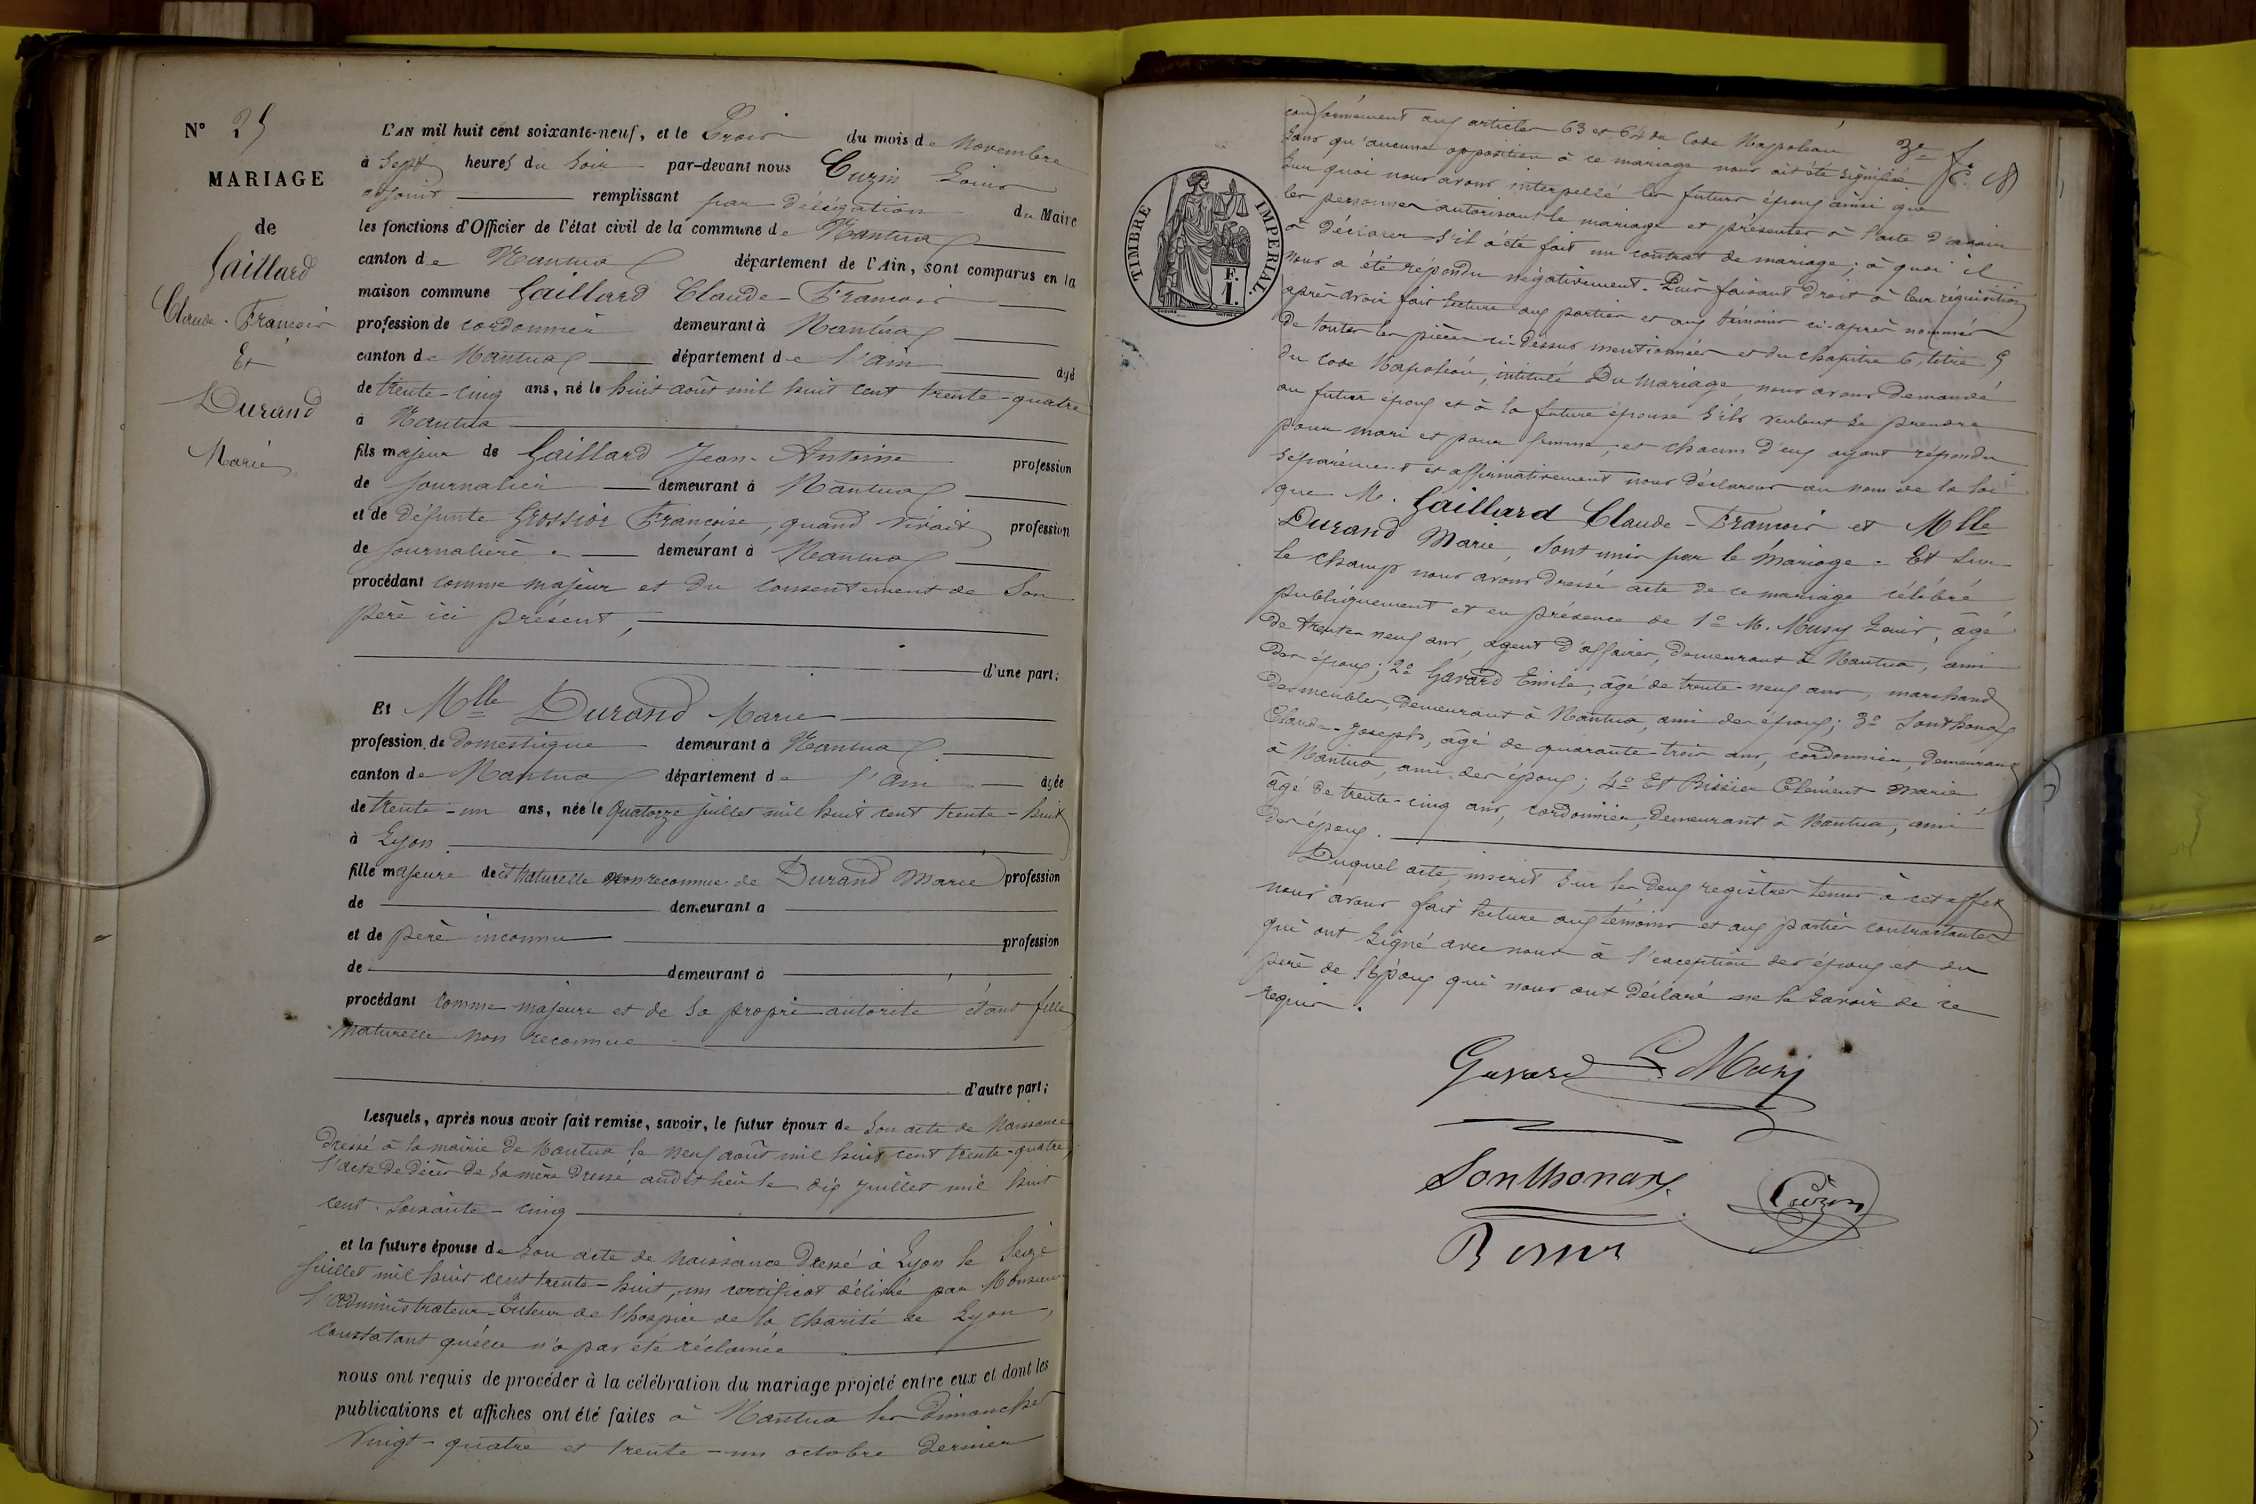 N° 25
MARIAGE
de
Gaillard
Claude-François
Et
Durand
Marie
L'AN mil huit cent soixante-neuf, et le Trois du mois de Novembre
à Sept heures du Soir par-devant nous Cuzin Louis
adjoint remplissant par Délégation du Maire
les fonctions d'Officier de l'état civil de la commune de Nantua
canton de Nantua département de l'Ain, sont comparus en la
maison commune Gaillard Claude-François
profession de cordonnier demeurant à Nantua
canton de Nantua département de l'ain âgé
de trente-cinq ans, né le huit août mil huit cent trente-quatre
à Nantua
fils majeur de Gaillard Jean-Antoine profession
de journalier demeurant à Nantua
et de défunte Grossior Françoise, quand vivait profession
de journalière demeurant à Nantua
procédant comme majeur et du consentement de Son
père ici présent,
d'une part;
Et Mlle Durand Marie
profession de domestique demeurant à Nantua
canton de Nantua département de l'ain âgée
de trente-un ans, née le quatorze juillet mil huit cent trente-huit
à Lyon
fille majeure de et Naturelle non reconnue de Durand Marie profession
de demeurant à
et de père inconnu profession
de demeurant à
procédant comme majeure et de sa propre autorité étant fille
naturelle non reconnue
d'autre part;
Lesquels, après nous avoir fait remise, savoir, le futur époux de Son acte de Naissance
Dressé à la mairie de Nantua le neuf août mil huit cent trente-quatre,
l'acte de décès de Sa mère Dressé audit lieu le dix juillet mil huit
cent Soixante-cinq
et la future épouse de Son acte de naissance Dressé à Lyon le Seize
Juillet mil huit cent trente-huit, un certificat délivré par Monsieur
l'administrateur-Tuteur de l'hospice de la charité de Lyon,
Constatant qu'elle n'a pas été réclamée
nous ont requis de procéder à la célébration du mariage projeté entre eux et dont les
publications et affiches ont été faites à Nantua les Dimanches
Vingt-quatre et trente-un octobre dernier
TIMBRE IMPERIAL.
F.
I.
3e
conformément aux articles 63 et 64 du Code Napoléon
Sans qu'aucune opposition à ce mariage nous ait été signifiée.
Sur quoi nous avons interpellé les futurs époux ainsi que
les personnes autorisant le mariage et présentes à l'acte d'avoir
à Déclarer S'il a été fait un contrat de mariage; à quoi il
nous a été répondu négativement. Puis faisant droit à leur réquisition
après avoir fait lecture aux parties et aux témoins ci-après nommés
de toutes les pièces ci-dessus mentionnées et du chapitre 6, titre 5
du Code Napoléon, intitulé Du Mariage, nous avons Demandé
au futur époux et à la future épouse S'ils veulent se prendre
pour mari et pour femme, et chacun d'eux ayant répondu
séparément et affirmativement nous déclarons au nom de la loi
que M. Gaillard Claude-François et Mlle
Durand Marie, Sont unis par le Mariage. Et Sur
le champ nous avons dressé acte de ce mariage célébré
publiquement et en présence de 1° M. Musy Louis, âgé
de trente-neuf ans, agent d'affaires, Demeurant à Nantua, ami
des époux; 2° Gavard Emile, âgé de trente-neuf ans, marchand
de meubles, Demeurant à Nantua, ami des époux; 3° Sonthonax
Claude-Joseph, âgé de quarante-trois ans, cordonnier, Demeurant
à Nantua, ami des époux; 4° Et Bissier Clément Marie
âgé de trente-cinq ans, cordonnier, Demeurant à Nantua, ami
des époux.
Duquel acte, inscrit Sur les deux registres tenus à cet effet
nous avons fait lecture aux témoins et aux parties contractantes
qui ont Signé avec nous à l'exception des époux et du
père de l'époux qui nous ont déclaré ne le Savoir de ce
requis.
Gavard L. Musy
Sonthonax
Cuzin